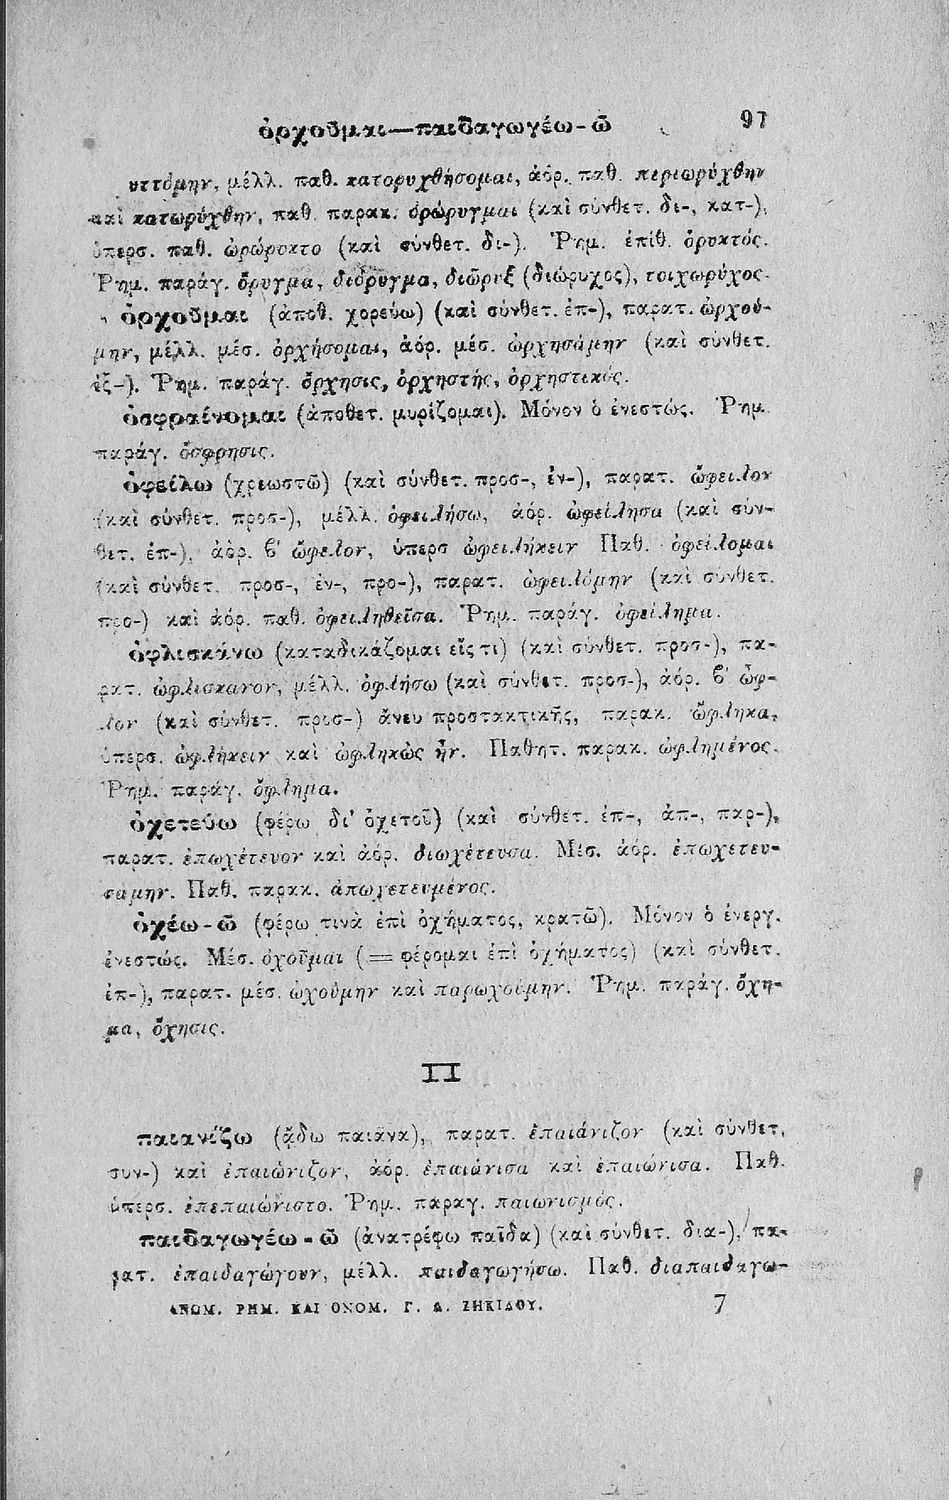 ὀρχοῦμαι—παιδαγωγέω-ῶ 97
υττόμην, μέλλ. παθ. κατορυχθήσομαι, ἀόρ. παθ. περιωρύχθην
καὶ κατωρύχθην, παθ. παρακ. ὀρώρυγμαι (καὶ σύνθετ. δι-, κατ-),
ὑπερσ. παθ. ὠρώρυκτο (καὶ σύνθετ. δι-). Ῥημ. ἐπίθ. ὀρυκτός.
Ῥημ. παράγ. ὄρυγμα, διόρυγμα, διῶρυξ (διώρυχος), τοιχωρύχος.
ὀρχοῦμαι (ἀποθ. χορεύω) (καὶ σύνθετ. ἐπ-), παρατ. ὠρχού-
μην, μέλλ. μέσ. ὀρχήσομαι, ἀόρ. μέσ. ὠρχησάμην (καὶ σύνθετ.
ἐξ-). Ῥημ. παράγ. ὄρχησις, ὀρχηστής, ὀρχηστικός.
ὀσφραίνομαι (ἀποθετ. μυρίζομαι). Μόνον ὁ ἐνεστώς. Ῥημ.
παράγ. ὄσφρησις.
ὀφείλω (χρεωστῶ) (καὶ σύνθετ. προσ-, ἐν-), παρατ. ὤφειλον
(καὶ σύνθετ. προσ-), μέλλ. ὀφειλήσω, ἀόρ. ὠφείλησα (καὶ σύν-
θετ. ἐπ-), ἀόρ. β′ ὤφελον, ὑπερσ ὠφειλήκειν Παθ. ὀφείλομαι
(καὶ σύνθετ. προσ-, ἐν-, προ-), παρατ. ὠφειλόμην (καὶ σύνθετ.
προ-) καὶ ἀόρ. παθ. ὀφειληθεῖσα. Ῥημ. παράγ. ὀφείλημα.
ὀφλισκάνω (καταδικάζομαι εἴς τι) (καὶ σύνθετ. προσ-), πα-
ρατ. ὠφλίσκανον, μέλλ. ὀφλήσω (καὶ σύνθετ. προσ-), ἀόρ. β′ ὦφ-
λον (καὶ σύνθετ. προσ-) ἄνευ προστακτικῆς, παρακ. ὤφληκα,
ὑπερσ. ὠφλήκειν καὶ ὠφληκὼς ἦν. Παθητ. παρακ. ὠφλημένος.
Ῥημ. παράγ. ὄφλημα.
ὀχετεύω (φέρω δι' ὀχετοῦ) (καὶ σύνθετ. ἐπ-, ἀπ-, παρ-),
παρατ. ἐπωχέτευον καὶ ἀόρ. διωχέτευσα. Μέσ. ἀόρ. ἐπωχετευ-
σάμην. Παθ. παρακ. ἀπωχετευμένος.
ὀχέω-ῶ (φέρω τινὰ ἐπὶ ὀχήματος, κρατῶ). Μόνον ὁ ἐνεργ.
ἐνεστώς. Μέσ. ὀχοῦμαι (= φέρομαι ἐπὶ ὀχήματος) (καὶ σύνθετ.
ἐπ-), παρατ. μέσ. ὠχούμην καὶ παρωχούμην. Ῥημ. παράγ. ὄχη-
μα, ὄχησις.
Π
παιανίζω (ᾄδω παιᾶνα), παρατ. ἐπαιάνιζον (καὶ σύνθετ.
συν-) καὶ ἐπαιώνιζον, ἀόρ. ἐπαιάνισα καὶ ἐπαιώνισα. Παθ.
ὑπερσ. ἐπεπαιώνιστο. Ῥημ. παραγ. παιωνισμός.
παιδαγωγέω-ῶ (ἀνατρέφω παῖδα) (καὶ σύνθετ. δια-), πα-
ρατ. ἐπαιδαγώγουν, μέλλ. παιδαγωγήσω. Παθ. διαπαιδαγω-
ΑΝΩΜ. ΡΗΜ. ΚΑΙ ΟΝΟΜ. Γ. Δ. ΖΗΚΙΔΟΥ. 7